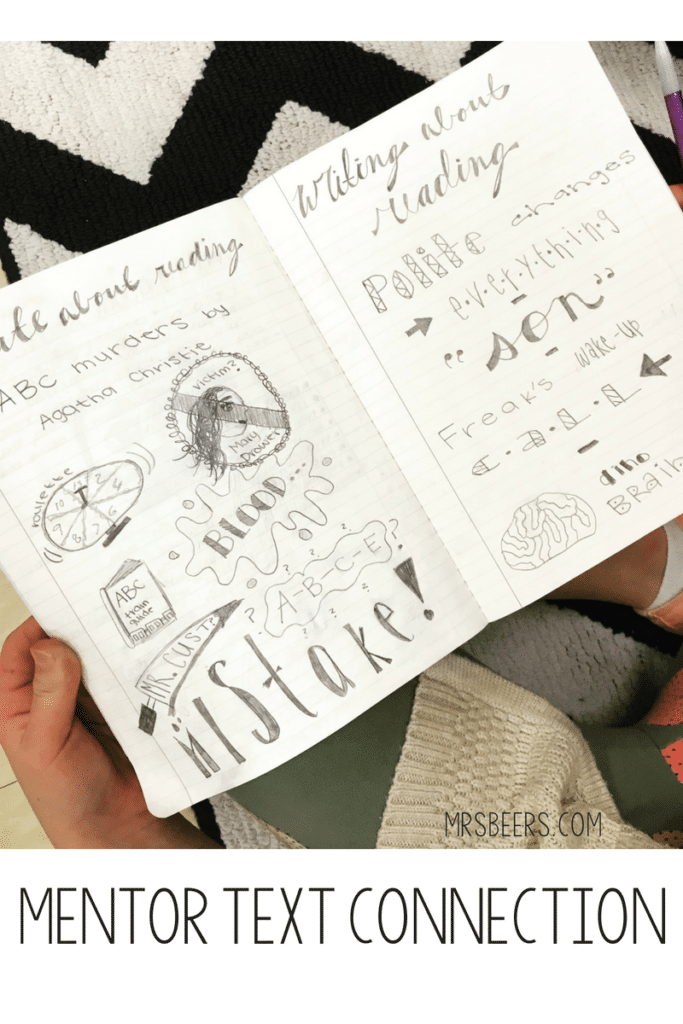 about reading
ABC murders by
Agatha Christie
victim?
Mary
Drower
roulette
BLOOD...
ABC
train
guide
A-B-C-E?
MR. CUST?
MIStake!
Writing about
reading
Polite changes
e.v.e.r.y.t.h.i.n.g
"son"
Freak's wake-up
C.A.L.L
dino
BRain
MRSBEERS.COM
MENTOR TEXT CONNECTION